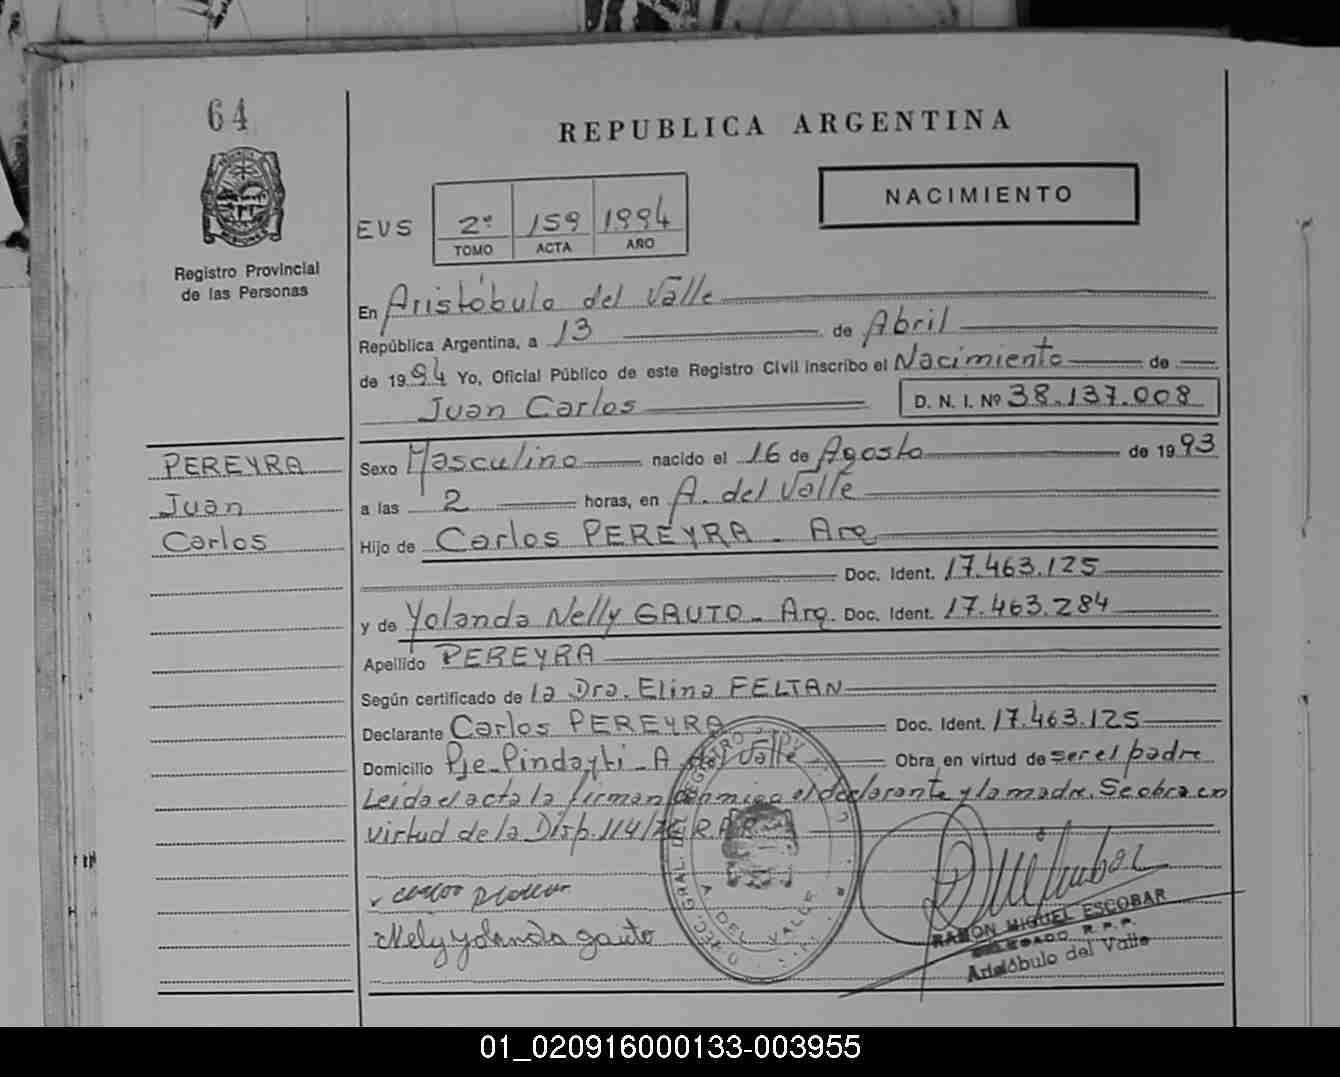 64
REPUBLICA ARGENTINA
NACIMIENTO
Registro Provincial
de las Personas
EVS 2º 159 1994
TOMO ACTA AÑO
En Aristóbulo del Valle
República Argentina, a 13 de Abril
de 1994 Yo, Oficial Público de este Registro Civil inscribo el Nacimiento de
Juan Carlos D. N. I. Nº 38.137.008
PEREYRA
Juan
Carlos
Sexo Masculino nacido el 16 de Agosto de 1993
a las 2 horas, en A. del Valle
Hijo de Carlos PEREYRA - Arg
Doc. Ident. 17.463.125
y de Yolanda Nelly GAUTO - Arg. Doc. Ident. 17.463.284
Apellido PEREYRA
Según certificado de la Dra. Elina FELTAN
Declarante Carlos PEREYRA Doc. Ident. 17.463.125
Domicilio Pje. Pindayti - A. del Valle Obra en virtud de ser el padre
Leída el acta la firman conmigo el declarante y la madre. Se obra en
virtud de la Disp. 114/76 R.P.
Nely yolanda gauto
A. DEL VALLE
RAMON MIGUEL ESCOBAR
R. P. P.
Aristóbulo del Valle
01_020916000133-003955